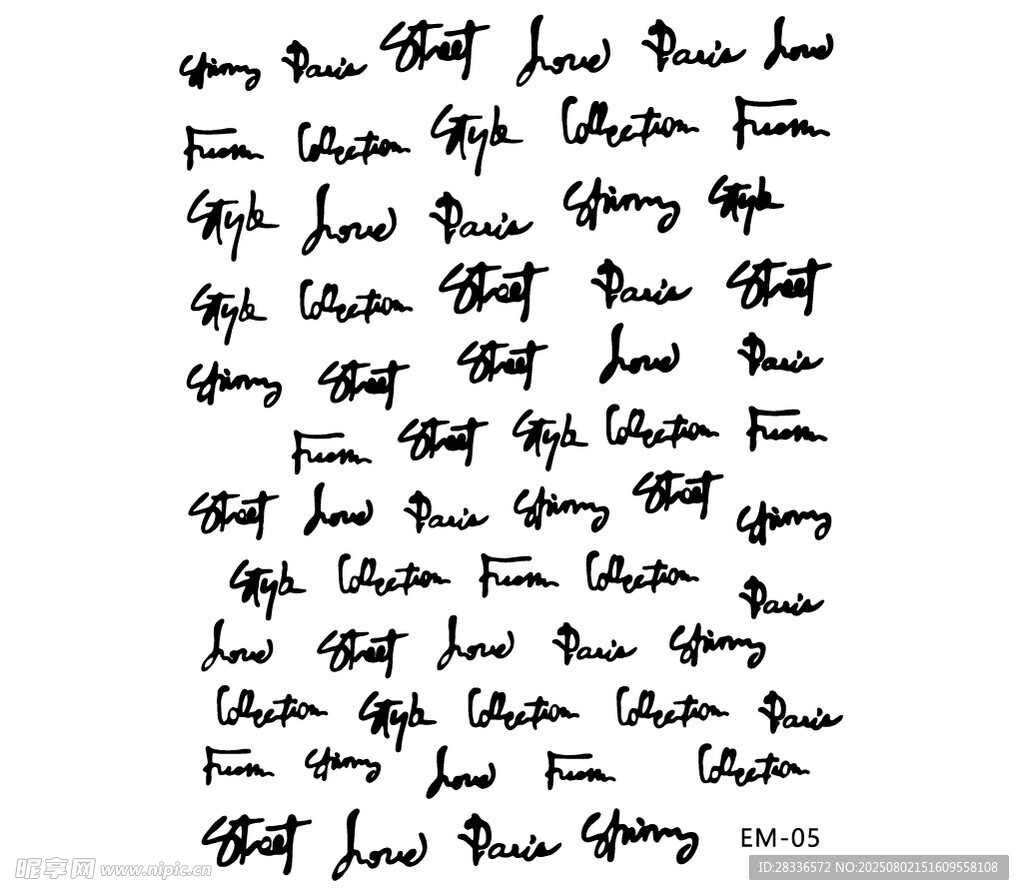 Spinny Paris Street Love Paris Love
From Collection Style Collection From
Style Love Paris Spinny Style
Style Collection Street Paris Street
Spinny Street Street Love Paris
From Street Style Collection From
Street Love Paris Spinny Street Spinny
Style Collection From Collection Paris
Love Street Love Paris Spinny
Collection Style Collection Collection Paris
From Spinny Love From Collection
Street Love Paris Spinny EM-05
昵享网 www.nipic.cn
ID:28336572 NO:20250802151609558108